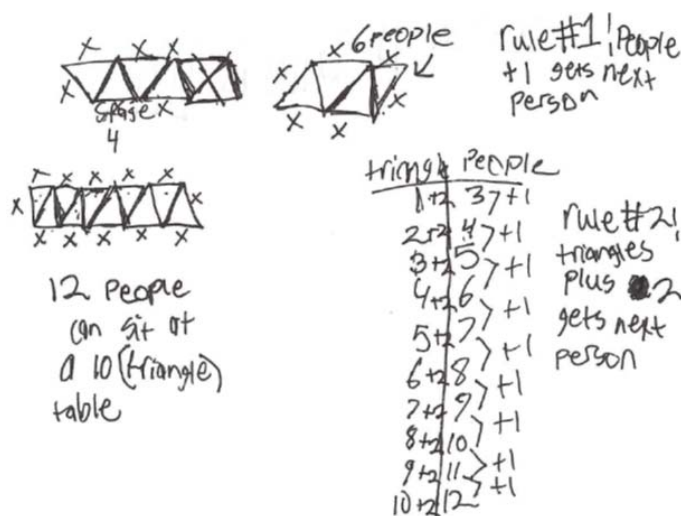 6 people
rule #1! People
+1 gets next
person
4
12 people
can sit at
a 10 (triangle)
table
triangle People
1+2 3 >+1
2+2 4 >+1
3+2 5 >+1
4+2 6 >+1
5+2 7 >+1
6+2 8 >+1
7+2 9 >+1
8+2 10 >+1
9+2 11 >+1
10+2 12
rule #2!
triangles
plus 2
gets next
person